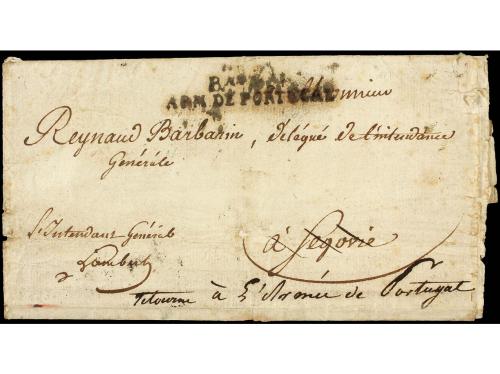 ARM. DE PORTUGAL
Monsieur
Reynaud Barbarin, délégué de l'intendance
Générale
L'Intendant Général
Lambert
à Ségovie
Retourné à L'Armée de Portugal